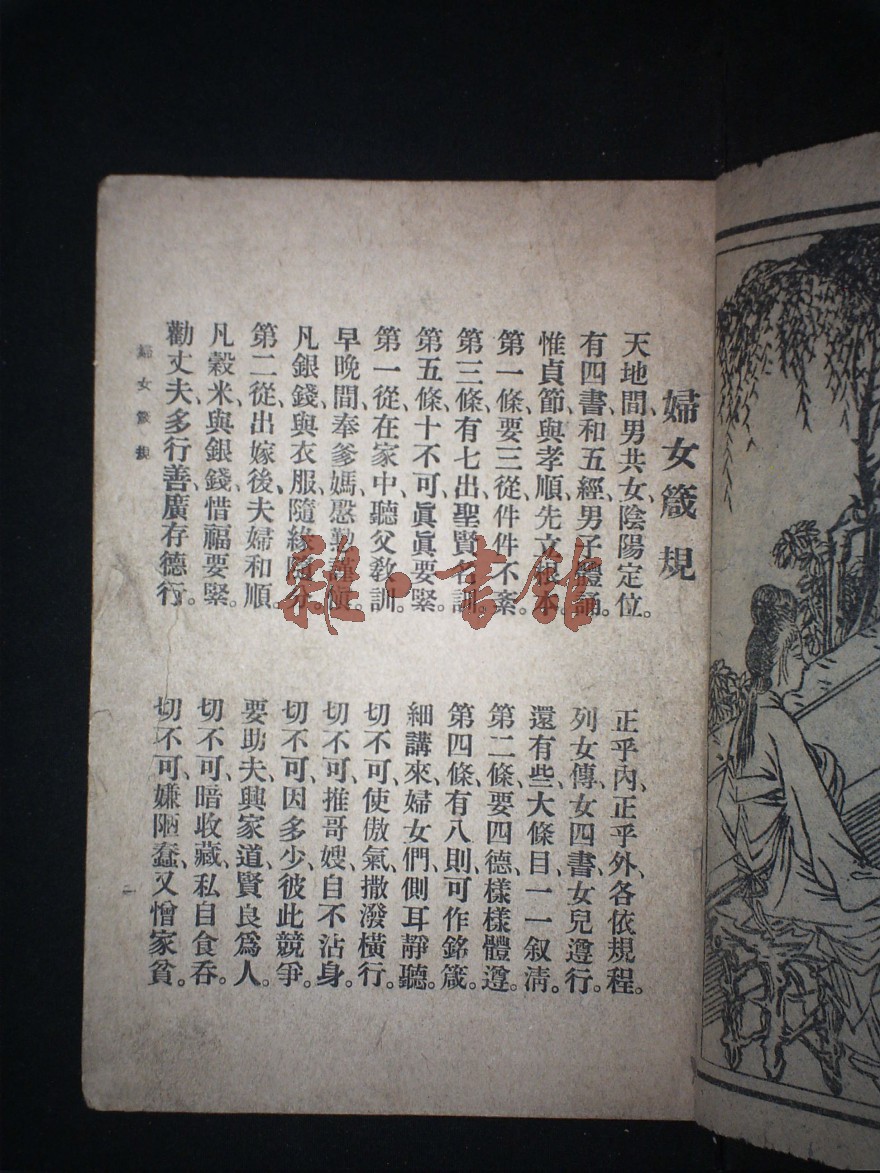 婦女箴規
天地間、男共女、陰陽定位。
正乎內、正乎外、各依規程。
有四書、和五經、男子體誦。
列女傳、女四書、女兒遵行。
惟貞節、與孝順、先立根本。
還有些、大條目、一一叙清。
第一條、要三從、件件不紊。
第二條、要四德、樣樣體遵。
第三條、有七出、聖賢名訓。
第四條、有八則、可作銘箴。
第五條、十不可、眞眞要緊。
細講來、婦女們、側耳靜聽。
第一從、在家中、聽父教訓。
切不可、使傲氣、撒潑橫行。
早晚間、奉爹媽、慇勤謹慎。
切不可、推哥嫂、自不沾身。
凡銀錢、與衣服、隨緣隨分。
切不可、因多少、彼此競爭。
第二從、出嫁後、夫婦和順。
要助夫、興家道、賢良爲人。
凡穀米、與銀錢、惜福要緊。
切不可、暗收藏、私自食吞。
勸丈夫、多行善、廣存德行。
切不可、嫌陋蠢、又憎家貧。
婦女箴規
二
雜·書館